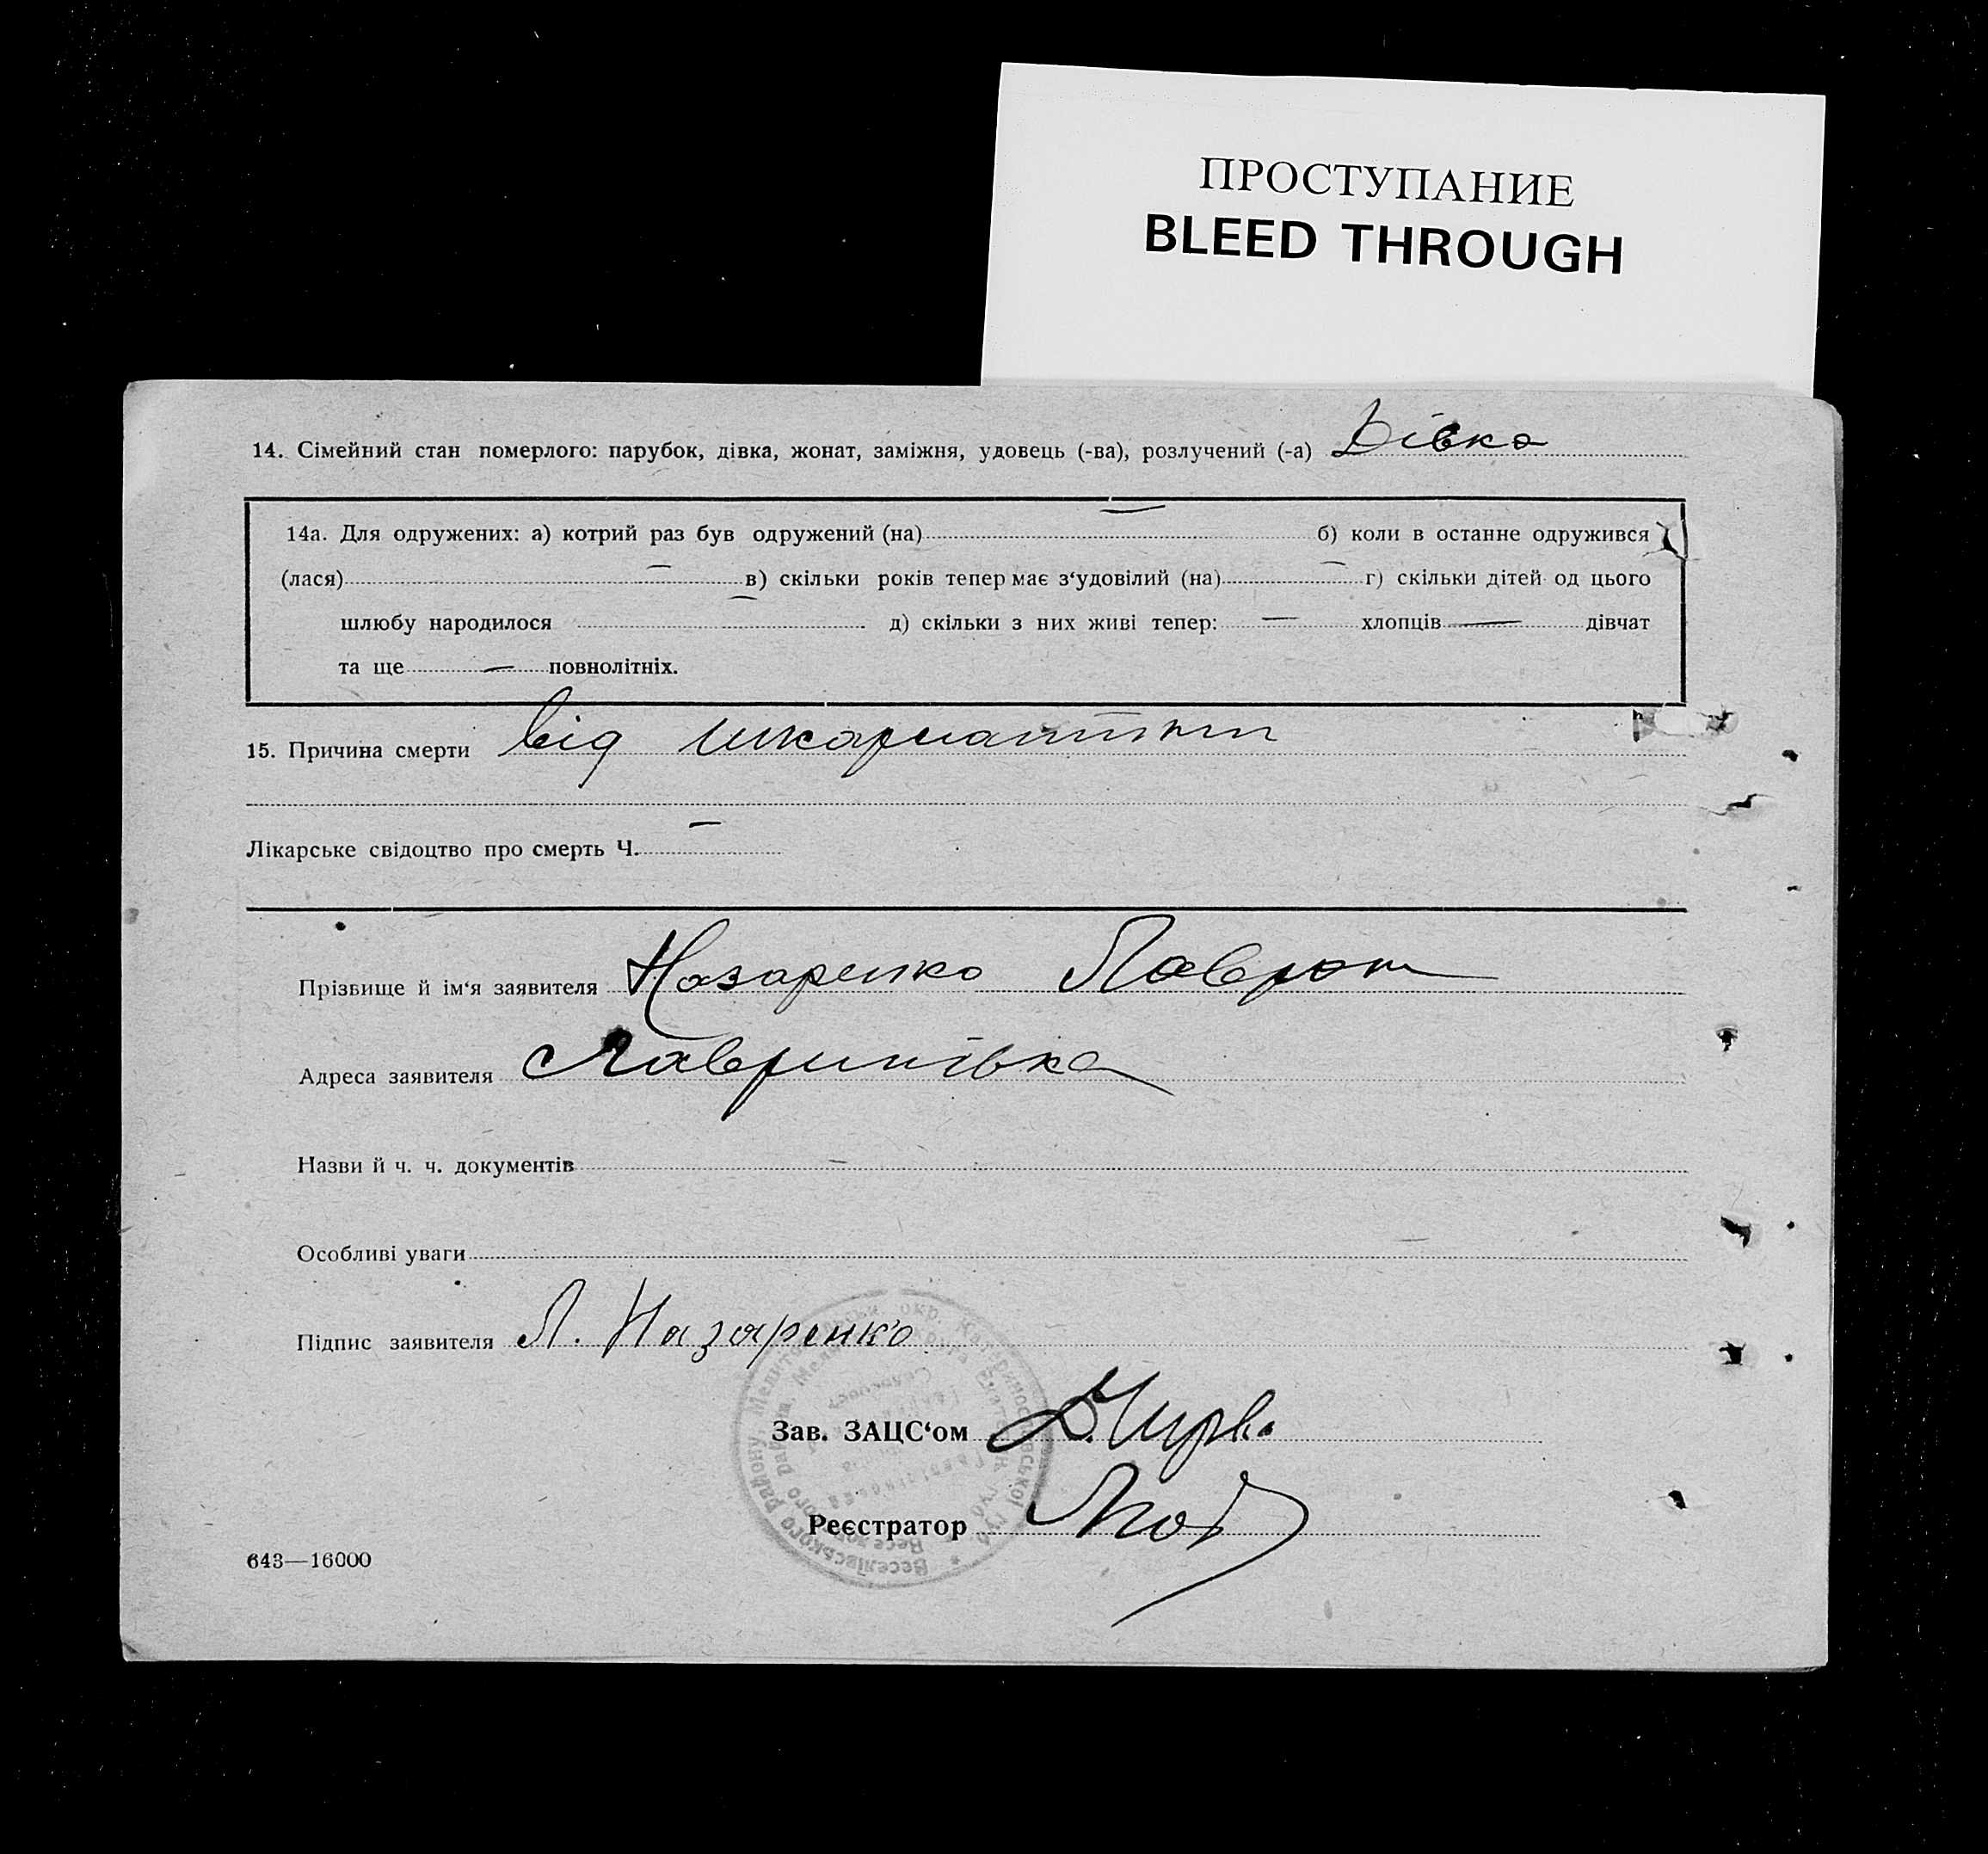 ПРОСТУПАНИЕ
BLEED THROUGH
14. Сімейний стан померлого: парубок, дівка, жонат, заміжня, удовець (-ва), розлучений (-а) Дівка
14а. Для одружених: а) котрий раз був одружений (на) — б) коли в останнє одружився
(лася) — в) скільки років тепер має з‘удовілий (на) — г) скільки дітей од цього
шлюбу народилося — д) скільки з них живі тепер: — хлопців — дівчат
та ще — повнолітніх.
15. Причина смерти від шкарлатини
Лікарське свідоцтво про смерть Ч. —
Прізвище й ім‘я заявителя Назаренко
Адреса заявителя Гавринівка
Назви й ч. ч. документів —
Особливі уваги —
Підпис заявителя Л. Назаренко
Зав. ЗАЦС‘ом
Реєстратор
643—16000